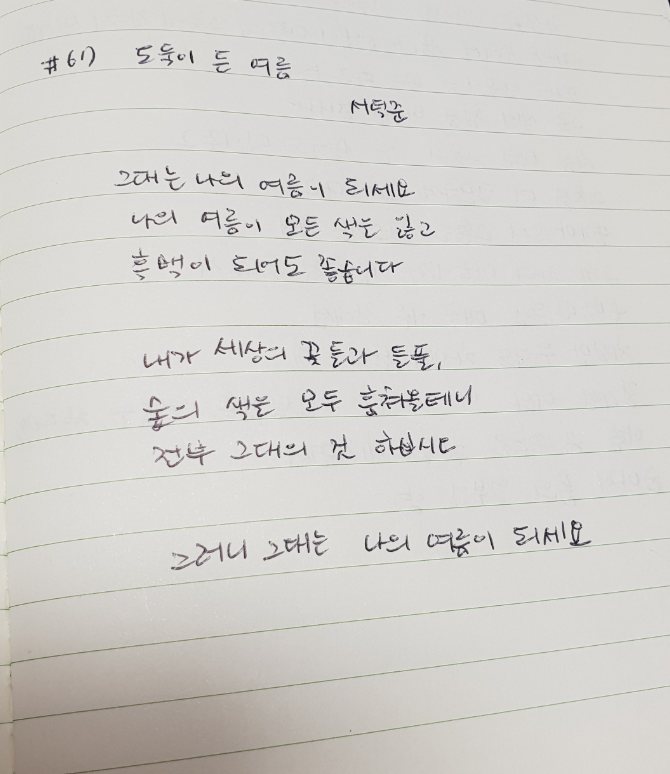 #61) 도둑이 든 여름
서덕준
그대는 나의 여름이 되세요
나의 여름이 모든 색을 잃고
흑백이 되어도 좋습니다
내가 세상의 꽃들과 들풀,
숲의 색을 모두 훔쳐올테니
전부 그대의 것 하십시다
그러니 그대는 나의 여름이 되세요